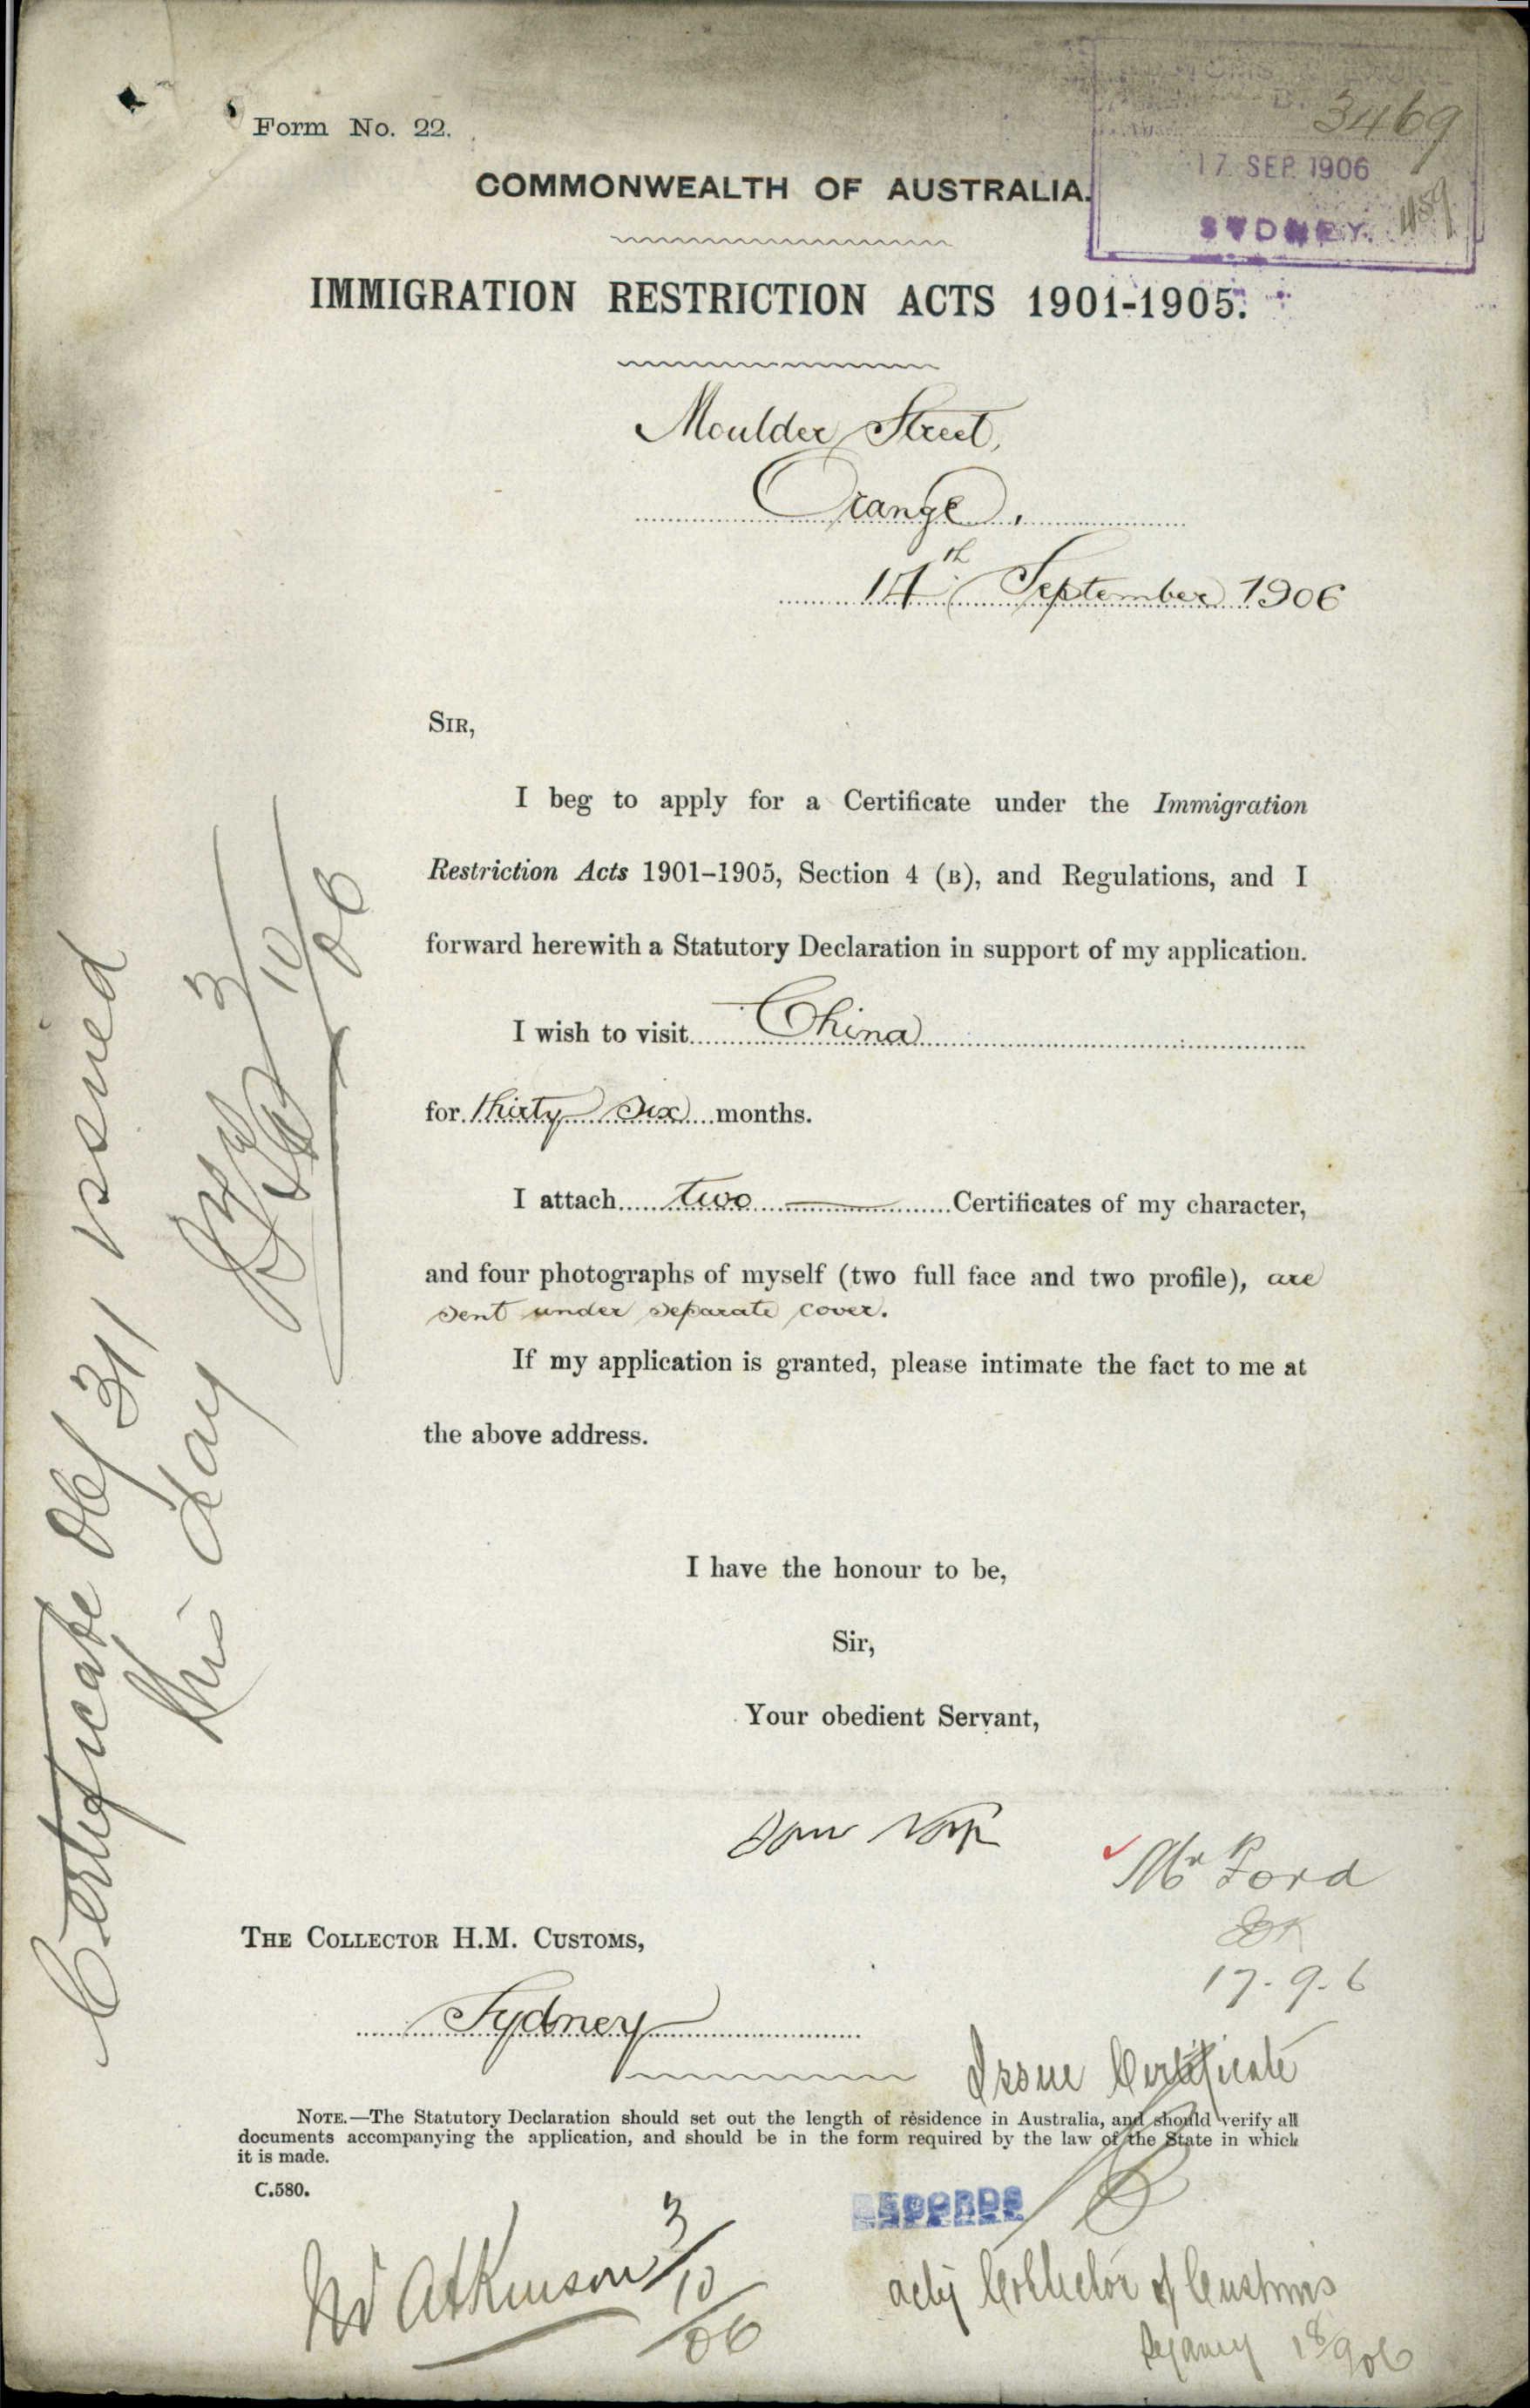 Form No. 22.
3469
17 SEP 1906
SYDNEY.
COMMONWEALTH OF AUSTRALIA.
IMMIGRATION RESTRICTION ACTS 1901-1905.
Moulder Street,
Orange,
14th September 1906
SIR,
I beg to apply for a Certificate under the Immigration
Restriction Acts 1901–1905, Section 4 (B), and Regulations, and I
forward herewith a Statutory Declaration in support of my application.
I wish to visit China
for thirty six months.
I attach two Certificates of my character,
and four photographs of myself (two full face and two profile), are
sent under separate cover.
If my application is granted, please intimate the fact to me at
the above address.
I have the honour to be,
Sir,
Your obedient Servant,
Mr Ford
17-9-6
THE COLLECTOR H.M. CUSTOMS,
Sydney
Issue Certificate
NOTE.—The Statutory Declaration should set out the length of residence in Australia, and should verify all
documents accompanying the application, and should be in the form required by the law of the State in which
it is made.
C.580.
Atkinson 3/10/06
Collector of Customs
Sydney 18/9/06
Certificate 06/311 issued
this day
3/10/06